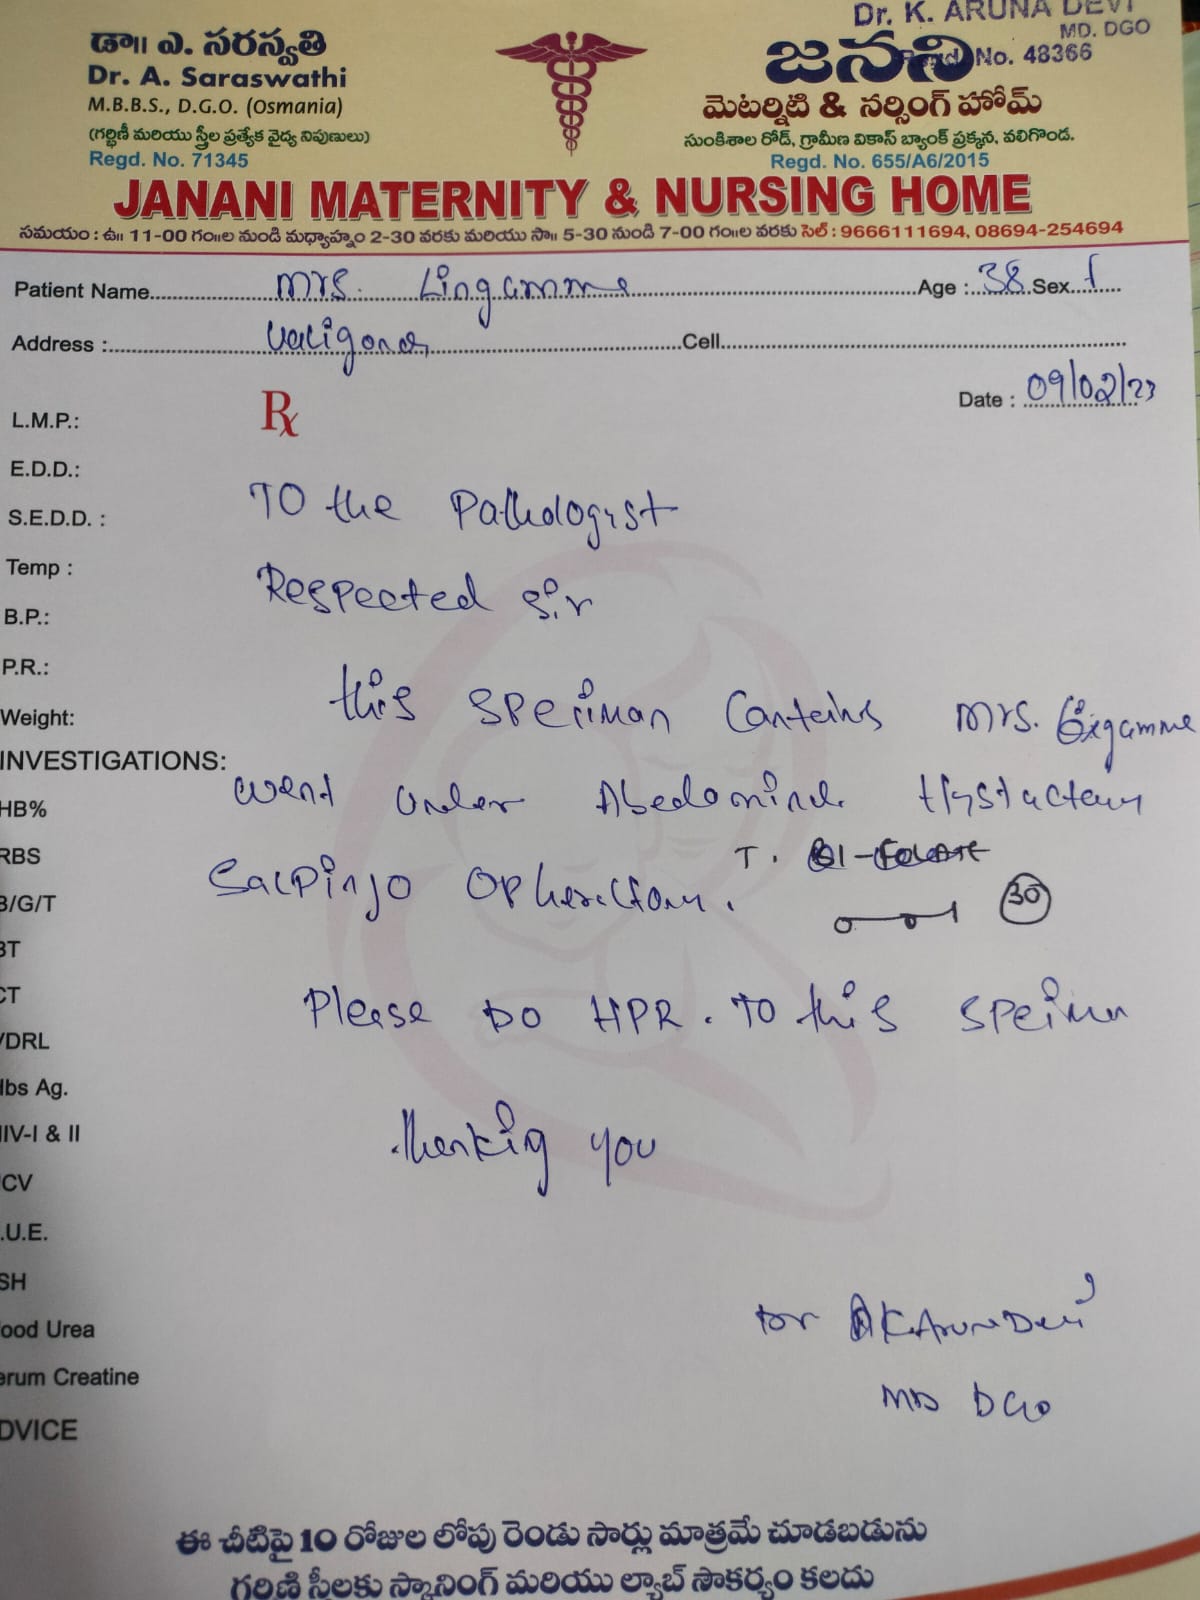 Dr. K. ARUNA DEVI
MD. DGO
No. 48366
డా॥ ఎ. సరస్వతి
Dr. A. Saraswathi
M.B.B.S., D.G.O. (Osmania)
(గర్భిణీ మరియు స్త్రీల ప్రత్యేక వైద్య నిపుణులు)
Regd. No. 71345
జనని
మెటర్నిటి & నర్సింగ్ హోమ్
సుంకిశాల రోడ్, గ్రామీణ వికాస్ బ్యాంక్ ప్రక్కన, వలిగొండ.
Regd. No. 655/A6/2015
JANANI MATERNITY & NURSING HOME
సమయం : ఉ॥ 11-00 గం॥ల నుండి మధ్యాహ్నం 2-30 వరకు మరియు సా॥ 5-30 నుండి 7-00 గం॥ల వరకు సెల్ : 9666111694, 08694-254694
Patient Name Mrs. Lingamma Age : 38 Sex f
Address : Valigonda Cell
Date : 09/02/23
L.M.P.: Rx
E.D.D.:
S.E.D.D. :
Temp :
B.P.:
P.R.:
Weight:
INVESTIGATIONS:
HB%
RBS
B/G/T
BT
CT
VDRL
Hbs Ag.
HIV-I & II
HCV
C.U.E.
SH
lood Urea
erum Creatine
DVICE
TO the Pathologist
Respected Sir
this Speciman Contains Mrs. Lingamma
went under Abedominal Hystactomy
Salpinjo Opherectomy.
T. BI-FOLATE
30
Please DO HPR. TO this Speciman
thanking you
Dr K. Aruna Devi
MD DGO
ఈ చీటిపై 10 రోజుల లోపు రెండు సార్లు మాత్రమే చూడబడును
గర్భిణి స్త్రీలకు స్కానింగ్ మరియు ల్యాబ్ సౌకర్యం కలదు